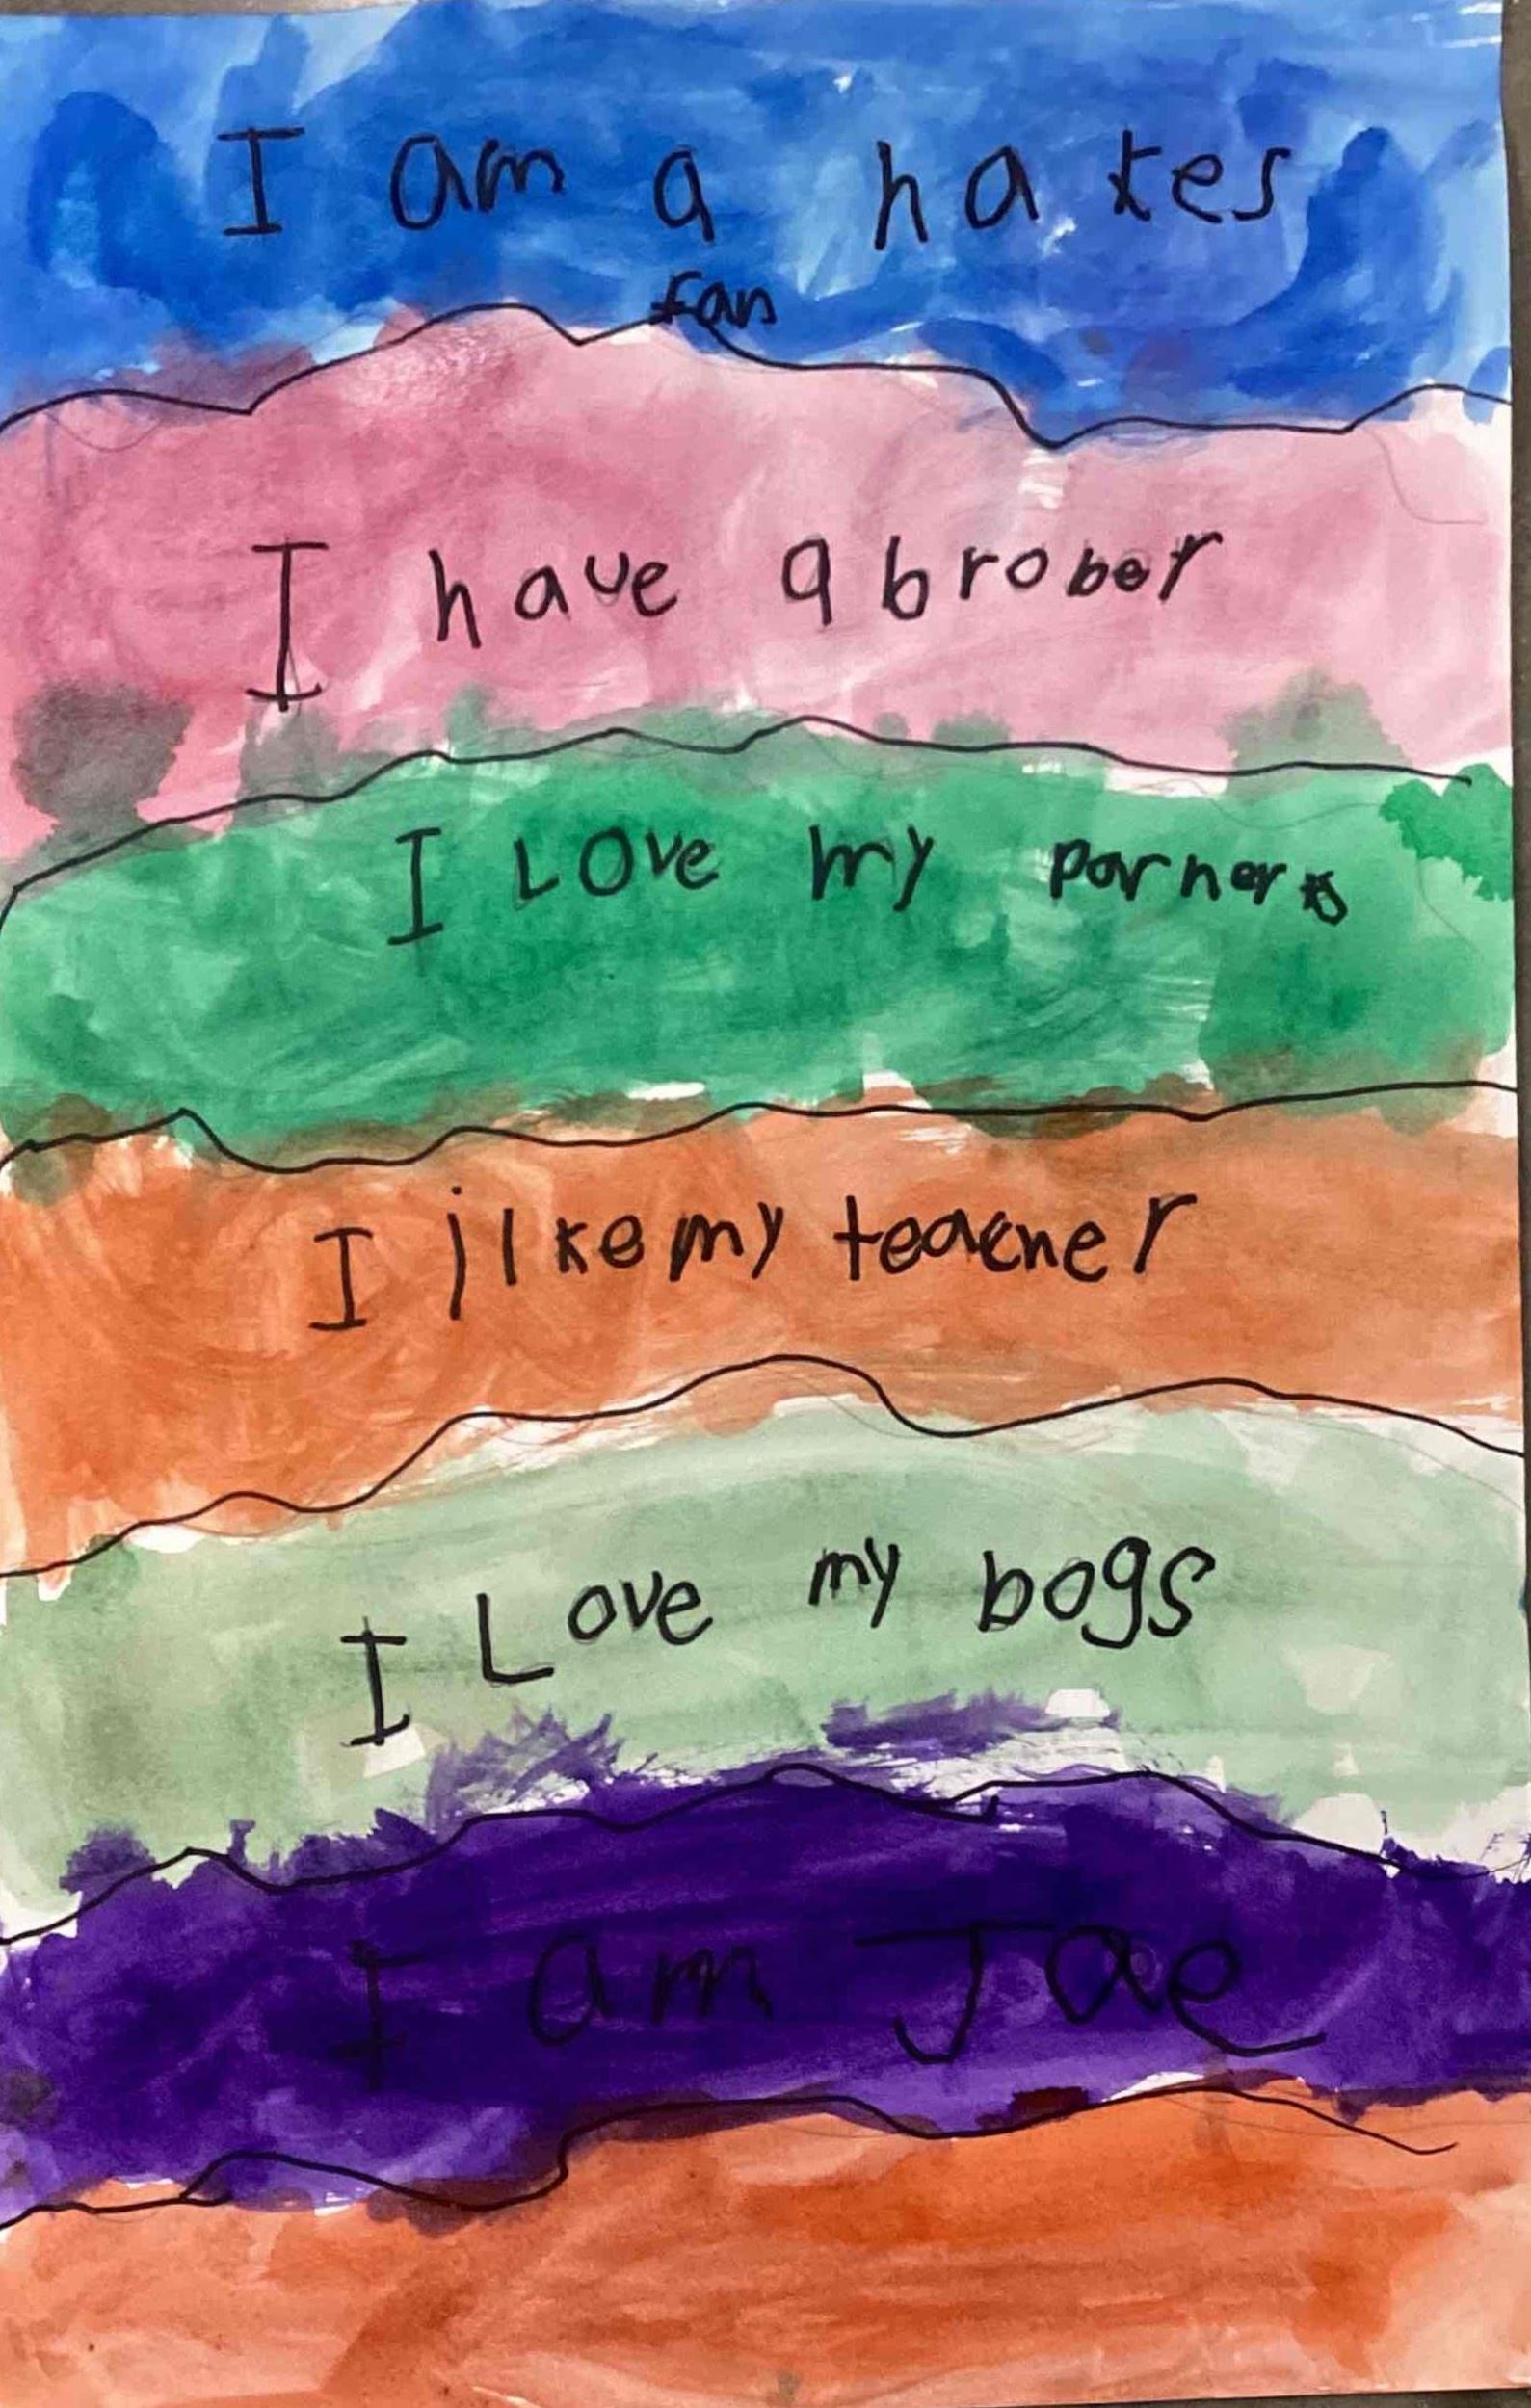 I am a hakes
fan
I have a brober
I Love my parners
I jlke my teacher
I Love my bogs
I am Jae